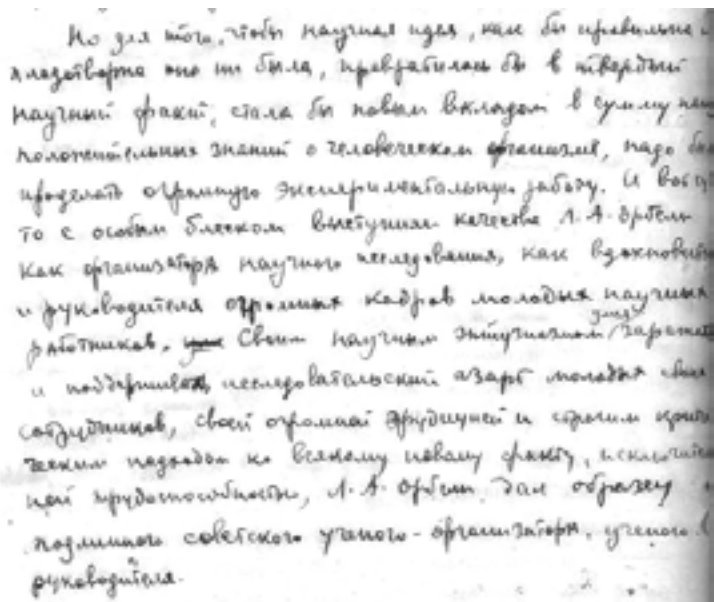 Но для того, чтобы научная идея, как бы правильна и
плодотворна она ни была, превратилась бы в твердый
научный факт, стала бы новым вкладом в сумму
положительных знаний о человеческом организме, надо
проделать огромную экспериментальную работу. И вот
то с особым блеском выступили качества Л.А. Орбели
как организатора научного исследования, как
и руководителя огромных кадров молодых научных
работников. Своим научным энтузиазмом умея
и поддерживать исследовательский азарт молодых
сотрудников, своей огромной эрудицией и строгим крити
ческим подходом ко всякому новому факту, исключитель
ной трудоспособностью, Л.А. Орбели дал образец
подлинного советского ученого-организатора, ученого
руководителя.